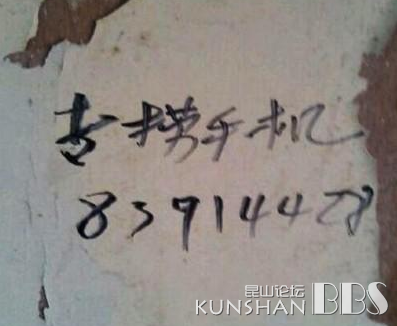 专捞手机
83914428
昆山论坛
KUNSHAN BBS